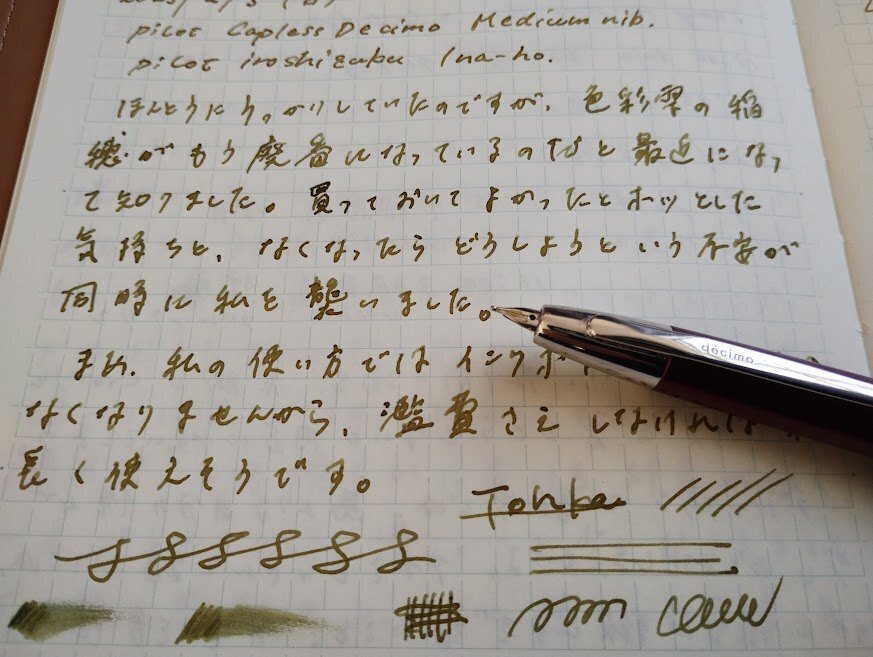 Pilot Capless Decimo Medium nib.
Pilot iroshizuku Ina-ho.
ほんとうにうっかりしていたのですが、色彩雫の稲
穂がもう廃番になっているのだと最近になっ
て知りました。買っておいてよかったとホッとした
気持ちと、なくなったらどうしようという不安が
同時に私を襲いました。
まぁ、私の使い方ではインクボ
なくなりませんから、濫費さえしなければ
長く使えそうです。
décimo